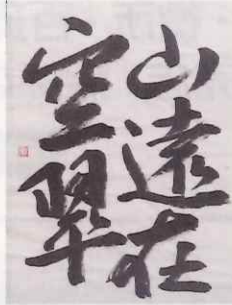 山遠在
空翠